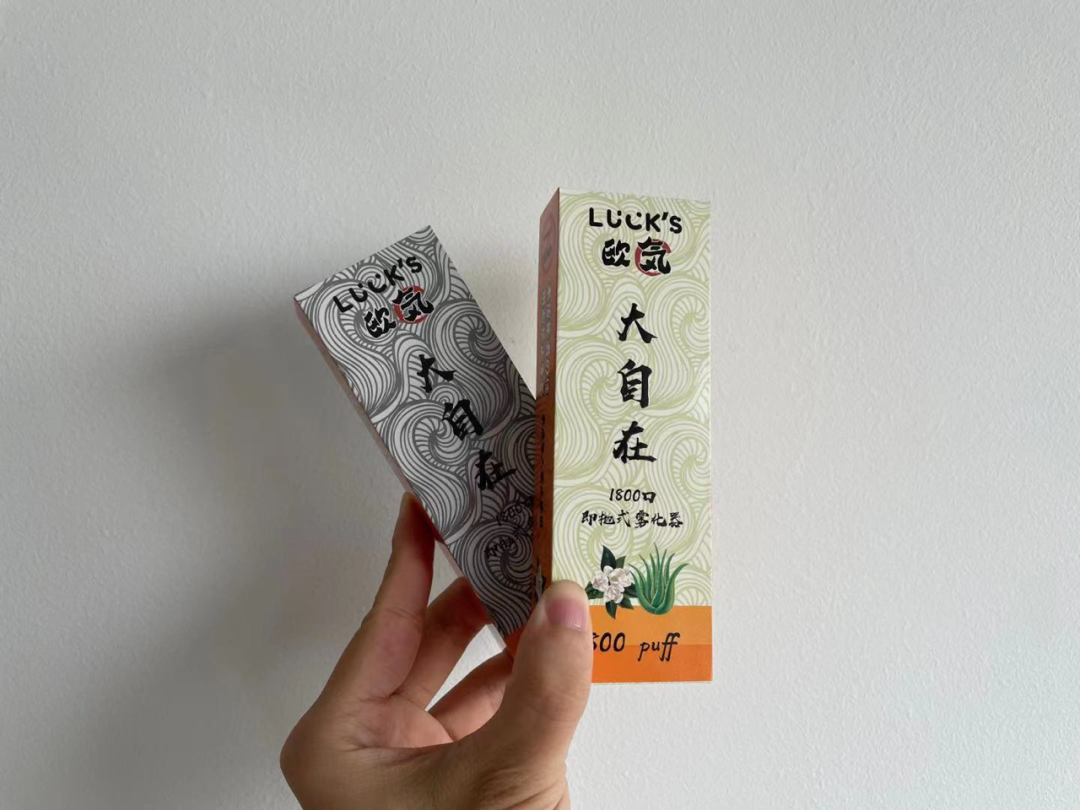 LUCK's
欧気
大
自
在
LUCK's
欧気
大
自
在
1800口
即抛式雾化器
800 puff